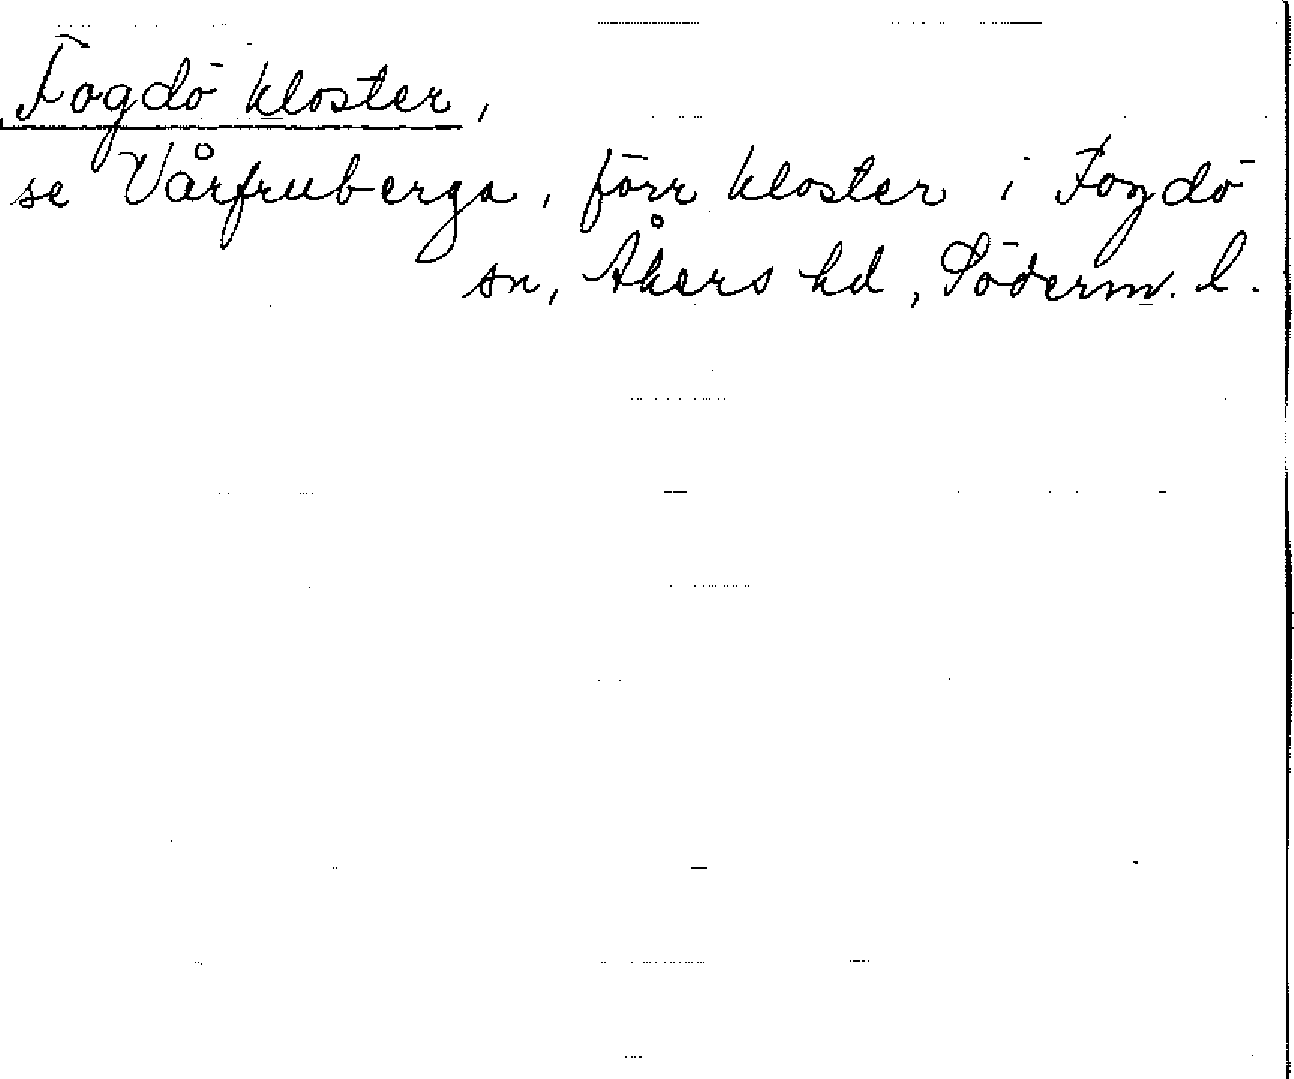 Fogdö kloster,
se Vårfruberga, förr kloster i Fogdö
sn, Åkers hd, Söderm. l.